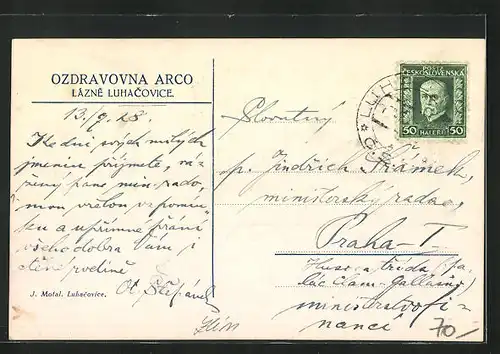 OZDRAVOVNA ARCO
LÁZNĚ LUHAČOVICE.
13/9. 28
Ke dni svých milých
jmenin přijměte, vá-
žený pane min. rado,
mou vřelou vzpomín-
ku a upřímné přání
všeho dobra Vám i
ctěné rodině
Ot. Štěpánek
J. Motal. Luhačovice.
POSTA
ČESKOSLOVENSKA
50 HALÉŘŮ 50
LUH
Slovutný
p. Jindřich Trámek,
ministerský rada,
Praha-I.
Husova třída (pa-
lác Clam-Gallasů)
ministerstvo fi-
nancí
70,-